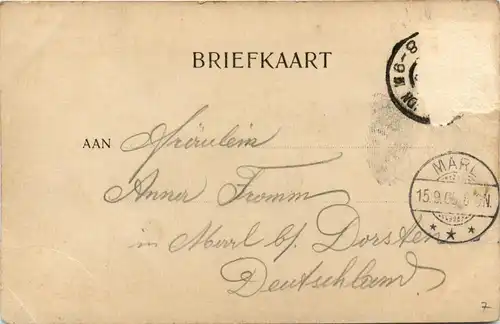 BRIEFKAART
8-9 N
AAN Fräulein
Anna Fromm
in Marl b/ Dorsten
Deutschland
MARL
15.9.05
7